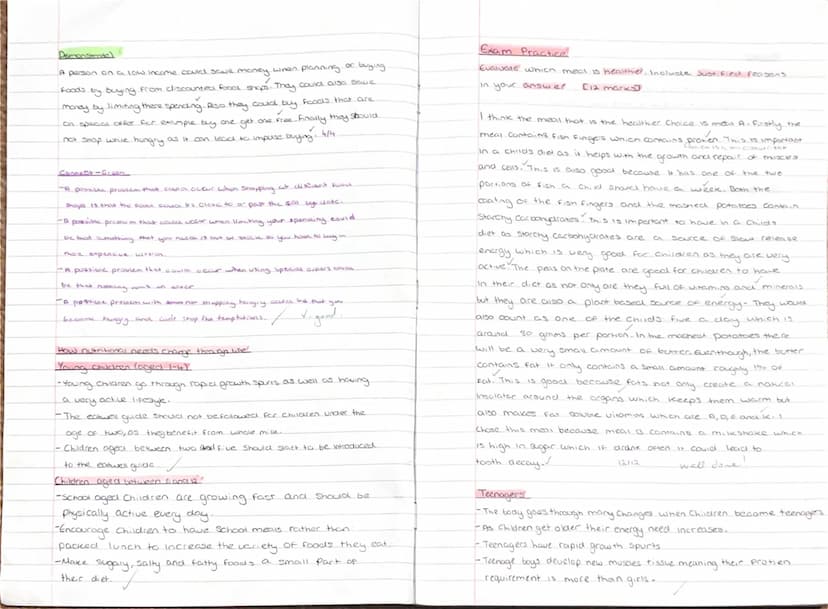 Demonstrate!
A person on a low income could save money when planning or buying
foods by buying from discounted food shops. They could also save
money by limiting there spending. Also they could buy foods that are
on special offer for example buy one get one free. Finally they should
not shop while hungry as it can lead to impulse buying. 4/4
Connect-Green
-A possible problem that could occur when shopping at discount food
shops is that the food could be close to or past the sell by date.
-A possible problem that could occur when limiting your spending could
be that something that you need is out of stock so you have to buy a
more expensive version.
-A possible problem that could occur when using special offers could
be that nothing is on offer.
-A possible problem with not shopping hungry could be that you
become hungry and can't stop the temptations. good!
How nutritional needs change through life
Young children (aged 1-4)
-Young children go through rapid growth spurts as well as having
a very active lifestyle.
-The eatwell guide should not be followed for children under the
age of two, as they benefit from whole milk.
-Children aged between two and five should start to be introduced
to the eatwell guide.
Children aged between 5 and 12
-School aged children are growing fast and should be
physically active every day.
-Encourage children to have school meals rather than
packed lunch to increase the variety of foods they eat.
-Make sugary, salty and fatty foods a small part of
their diet.
Exam Practice
Evaluate which meal is healthier. Include justified reasons
in your answer [12 marks]
I think the meal that is the healthier choice is meal A. Firstly the
meal contains fish fingers which contains protien. This is important
in a childs diet as it helps with the growth and repair of muscles
and cells. This is also good because it has one of the two
portions of fish a child should have a week. Both the
coating of the fish fingers and the mashed potatoes contain
starchy carbohydrates. This is important to have in a childs
diet as starchy carbohydrates are a source of slow release
energy which is very good for children as they are very
active. The peas on the plate are good for children to have
in their diet as not only are they full of vitamins and minerals
but they are also a plant based source of energy. They would
also count as one of the childs five a day which is
around 80 grams per portion. In the mashed potatoes there
will be a very small amount of butter. Eventhough, the butter
contains fat it only contains a small amount roughly 1% of
fat. This is good because fats not only create a natural
insulator around the organs which keeps them warm but
also makes fat soluble vitamins which are A, D, E and K. I
chose this meal because meal B contains a milkshake which
is high in sugar which if drank often it could lead to
tooth decay. 12/12 well done!
Teenagers
-The body goes through many changes when children become teenagers
-As children get older their energy need increases.
-Teenagers have rapid growth spurts
-Teenage boys develop new muscles tissue meaning their protien
requirement is more than girls.